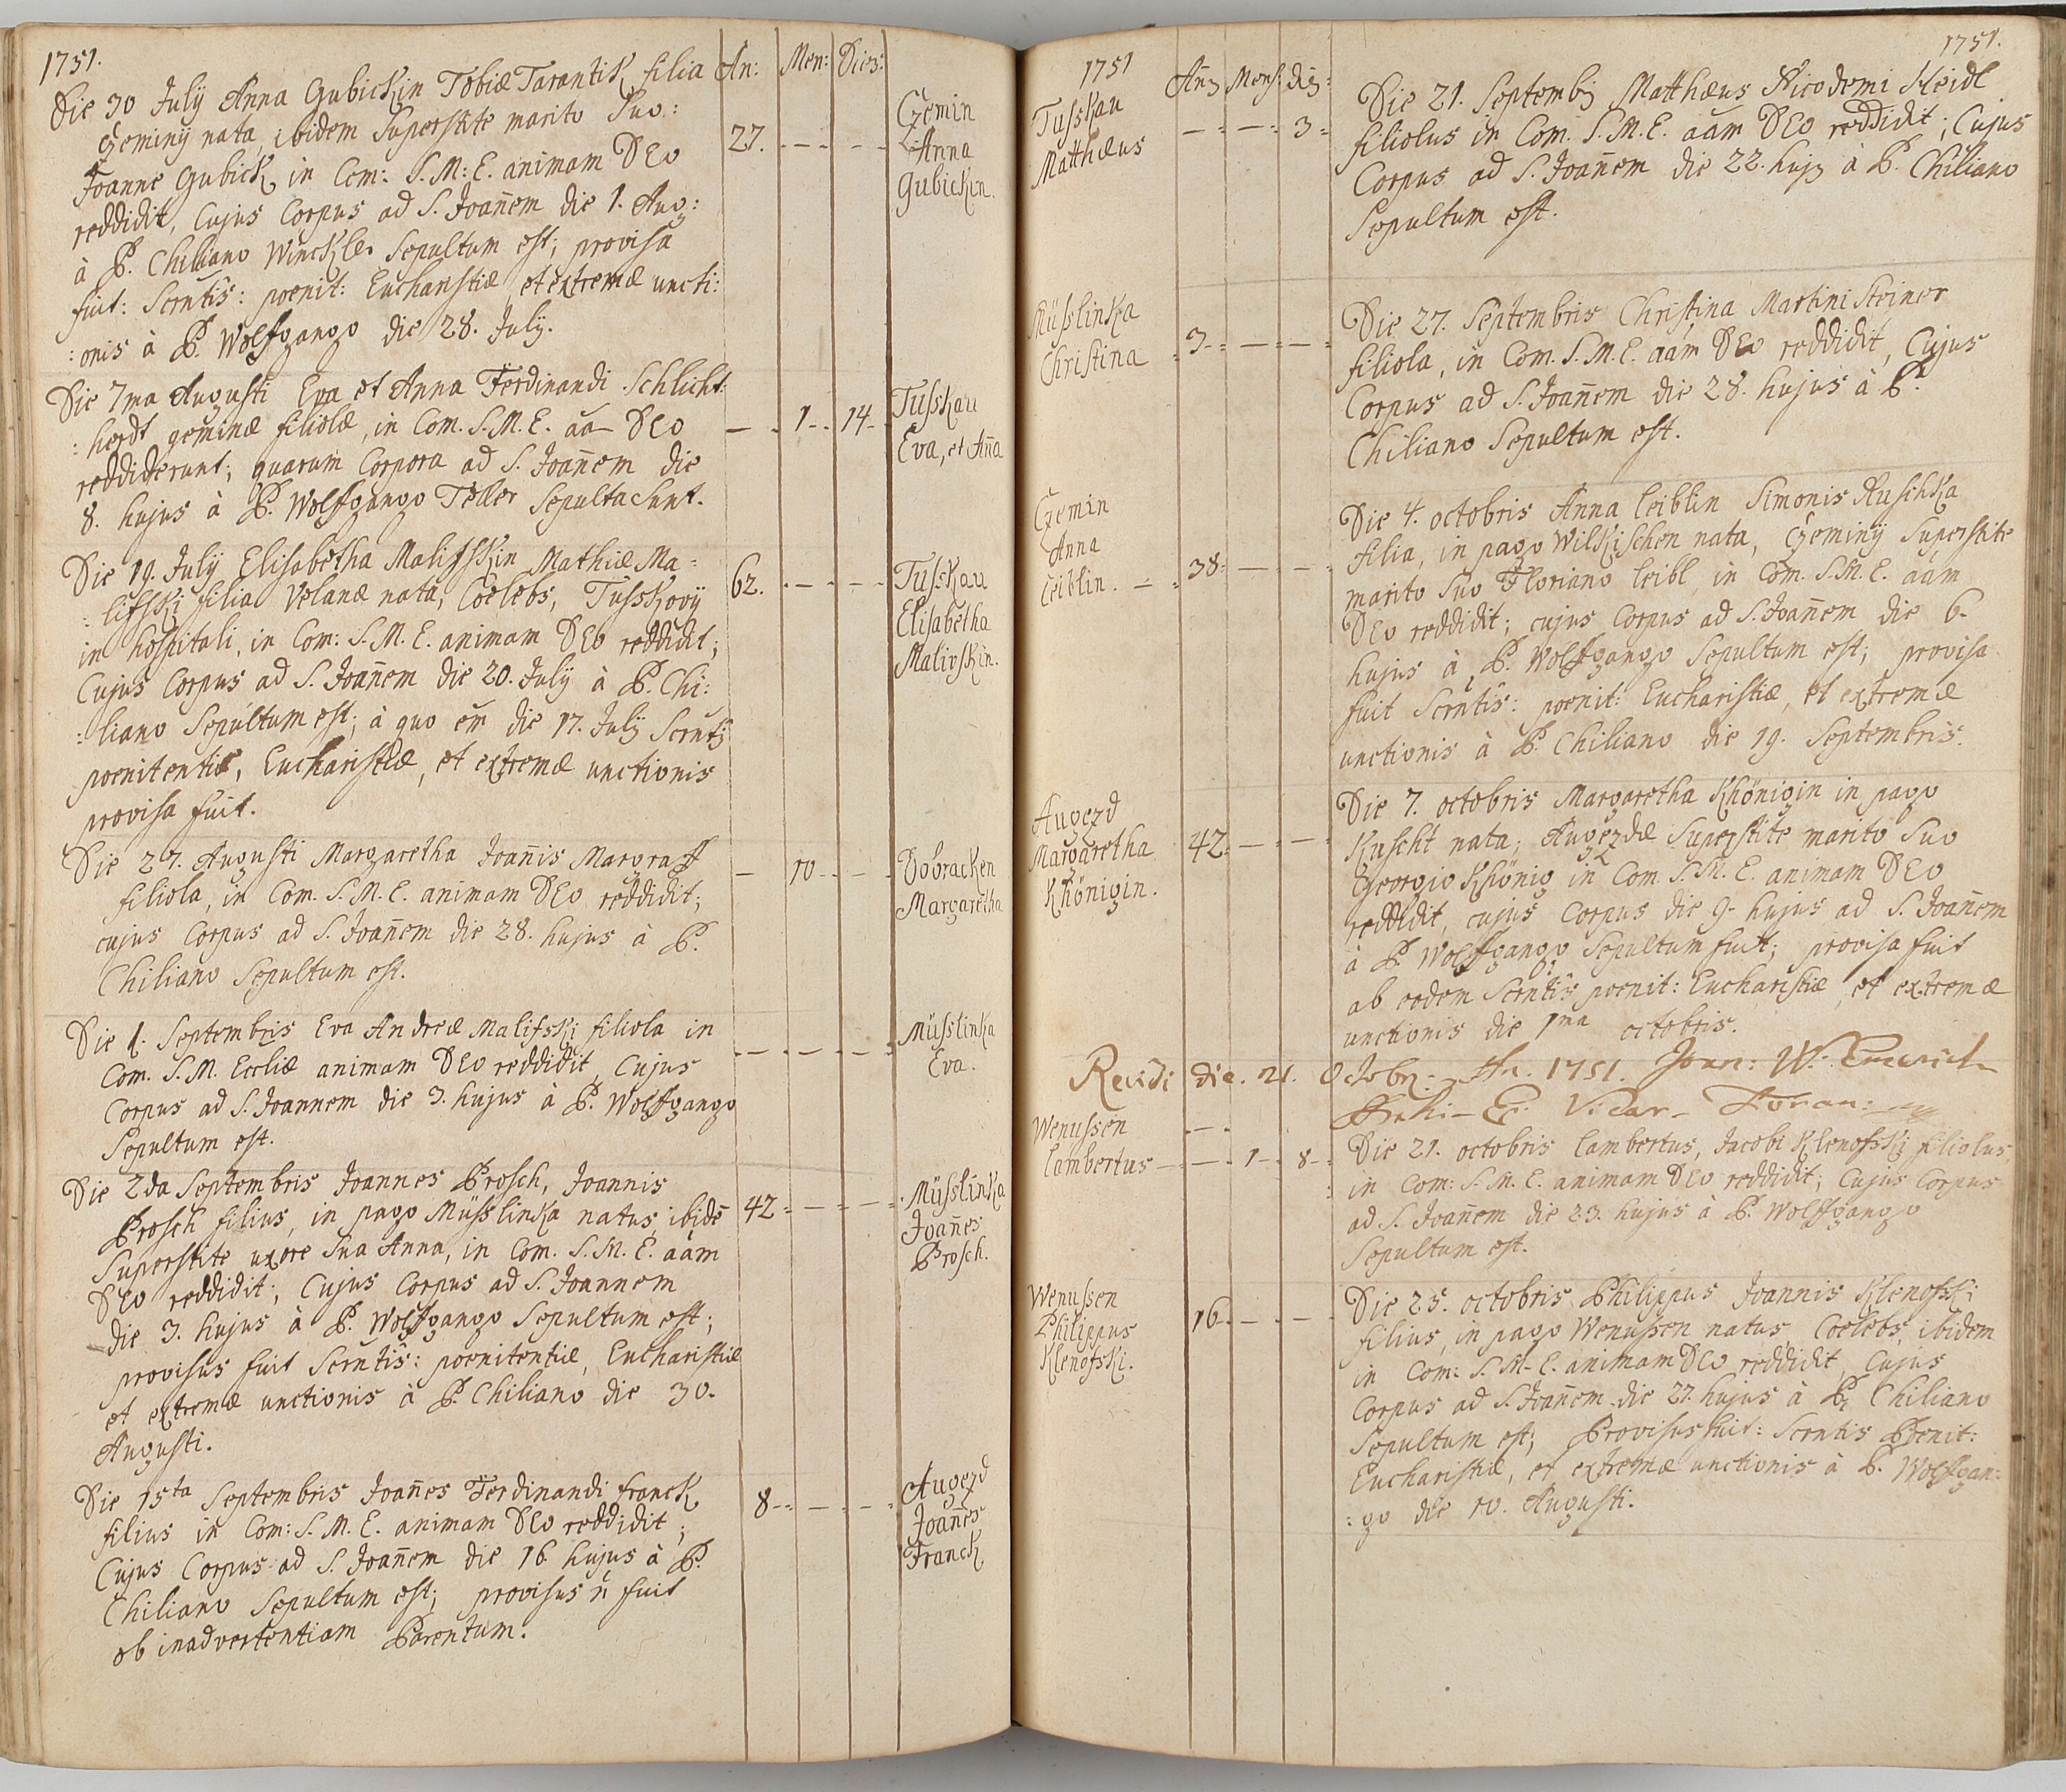 1751.
An: Men: Dies:
Die 30 July Anna Gubickin Tobiæ Tarantik filia
Czeminÿ nata, ibidem Superstite marito Suo:
Joanne Gubick in Com: S.M:E. animam DEO
reddidit, Cujus Corpus ad S. Joañem die 1. Aug:
à P. Chiliano Winckler Sepultum est; provisa
fuit: Scrntis: poenit: Eucharistiæ, et extremæ uncti:
:onis à P. Wolfgango die 28. July.
27. - - -
Czemin
Anna
Gubickin.
Die 7ma Augusti Eva et Anna Ferdinandi Schlicht:
:herdt geminæ filiolæ, in Com. S.M.E. aa- DEO
reddiderunt; quarum Corpora ad S. Joañem die
8. hujus à P. Wolfgango Teller Sepulta sunt.
- 1 - 14 -
Tusskau
Eva, et Aña
Die 19. July Elisabetha Malifskin Mathiæ Ma-
:lifski filia Velanæ nata, Coelebs, Tusskovÿ
in hospitali, in Com: S.M.E. animam DEO reddidit;
Cujus Corpus ad S. Joañem die 20. July à P. Chi:
:liano Sepultum est; à quo em die 17. July Scrnt;
poenitentiæ, Eucharistiæ, et extremæ unctionis
provisa fuit.
62. - - -
Tusskau
Elisabetha
Malivskin.
Die 27. Augusti Margaretha Joañis Margraff
filiola, in Com. S.M.E. animam DEO reddidit;
cujus Corpus ad S. Joañem die 28. hujus à P.
Chiliano Sepultum est.
- 10 - -
Dobracken
Margaretha
Die 1. Septembris Eva Andreæ Malifski filiola in
Com. S.M. Eccliæ animam DEO reddidit, Cujus
Corpus ad S. Joannem die 3. hujus à P. Wolfgango
Sepultum est.
- - - -
Müsslinka
Eva.
Die 2da Septembris Joannes Prosch, Joannis
Prosch filius, in pago Müsslinka natus ibidē
Superstite uxore Sua Anna, in Com. S.M.E. aam
DEO reddidit; Cujus Corpus ad S. Joannem
die 3. hujus à P. Wolfgango Sepultum est;
provisus fuit Scrntis: poenitentiæ, Eucharistiæ
et extremæ unctionis à P. Chiliano die 30.
Augusti.
42 - - -
Müsslinka
Joañes
Prosch.
Die 15ta Septembris Joañes Ferdinandi Franck
filius in Com: S.M.E. animam DEO reddidit;
Cujus Corpus ad S. Joañem die 16 hujus à P.
Chiliano Sepultum est; provisus ñ fuit
ob inadvertentiam Parentum.
8 - - -
Augezd
Joañes
Franck
1751
1751.
Mens:
Tusskau
Matthæus
- - 3 -
Die 21. Septemb; Matthæus Nicodemi Heidl
filiolus in Com. S.M.E. aam DEO reddidit; Cujus
Corpus ad S. Joañem die 22. huj; à P. Chiliano
Sepultum est.
Müsslinka
Christina
3 - - -
Die 27. Septembris Christina Martini Steiner
filiola, in Com. S.M.E. aam DEO reddidit, Cujus
Corpus ad S. Joañem die 28. hujus à P.
Chiliano Sepultum est.
Czemin
Anna
Leiblin.
38 - - -
Die 4. octobris Anna Leiblin Simonis Ruschka
filia, in pago Wilkischen nata, Czeminÿ Superstite
marito Suo Floriano Leibl, in Com. S.M.E. aam
DEO reddidit; cujus Corpus ad S. Joañem die 6.
hujus à P. Wolfgango Sepultum est; provisa
fuit Scrntis: poenit: Eucharistiæ, et extremæ
unctionis à P. Chiliano die 19. Septembris.
Augezd
Margaretha
Khönigin.
42 - - -
Die 7. octobris Margaretha Khönigin in pago
Kuscht nata; Augezdæ Superstite marito Suo
Georgio Khönig in Com S.M.E. animam DEO
reddidit, cujus Corpus die 9. hujus ad S. Joañem
à P. Wolfgango Sepultum fuit; provisa fuit
ab eodem Scrntis poenit: Eucharistiæ, et extremæ
unctionis die 1ma octobris.
Revidi die. 21. 8 A. 1751. Joan: W:
Vicar. Foran:
Wenussen
Lambertus
- 1 - 8 -
Die 21. octobris Lambertus, Jacobi Klenofski filiolus,
in Com: S.M.E. animam DEO reddidit; Cujus Corpus
ad S. Joañem die 23. hujus à P. Wolfgango
Sepultum est.
Wenussen
Philippus
Klenofski.
16 - - -
Die 25. octobris Philippus Joannis Klenofski
filius, in pago Wenussen natus, Coelebs, ibidem
in Com: S.M.E. animam DEO reddidit, Cujus
Corpus ad S. Joañem die 27. hujus à P. Chiliano
Sepultum est; Provisus fuit: Scrntis Poenit:
Eucharistiæ, et extremæ unctionis à P. Wolfgan:
:go die 10. Augusti.